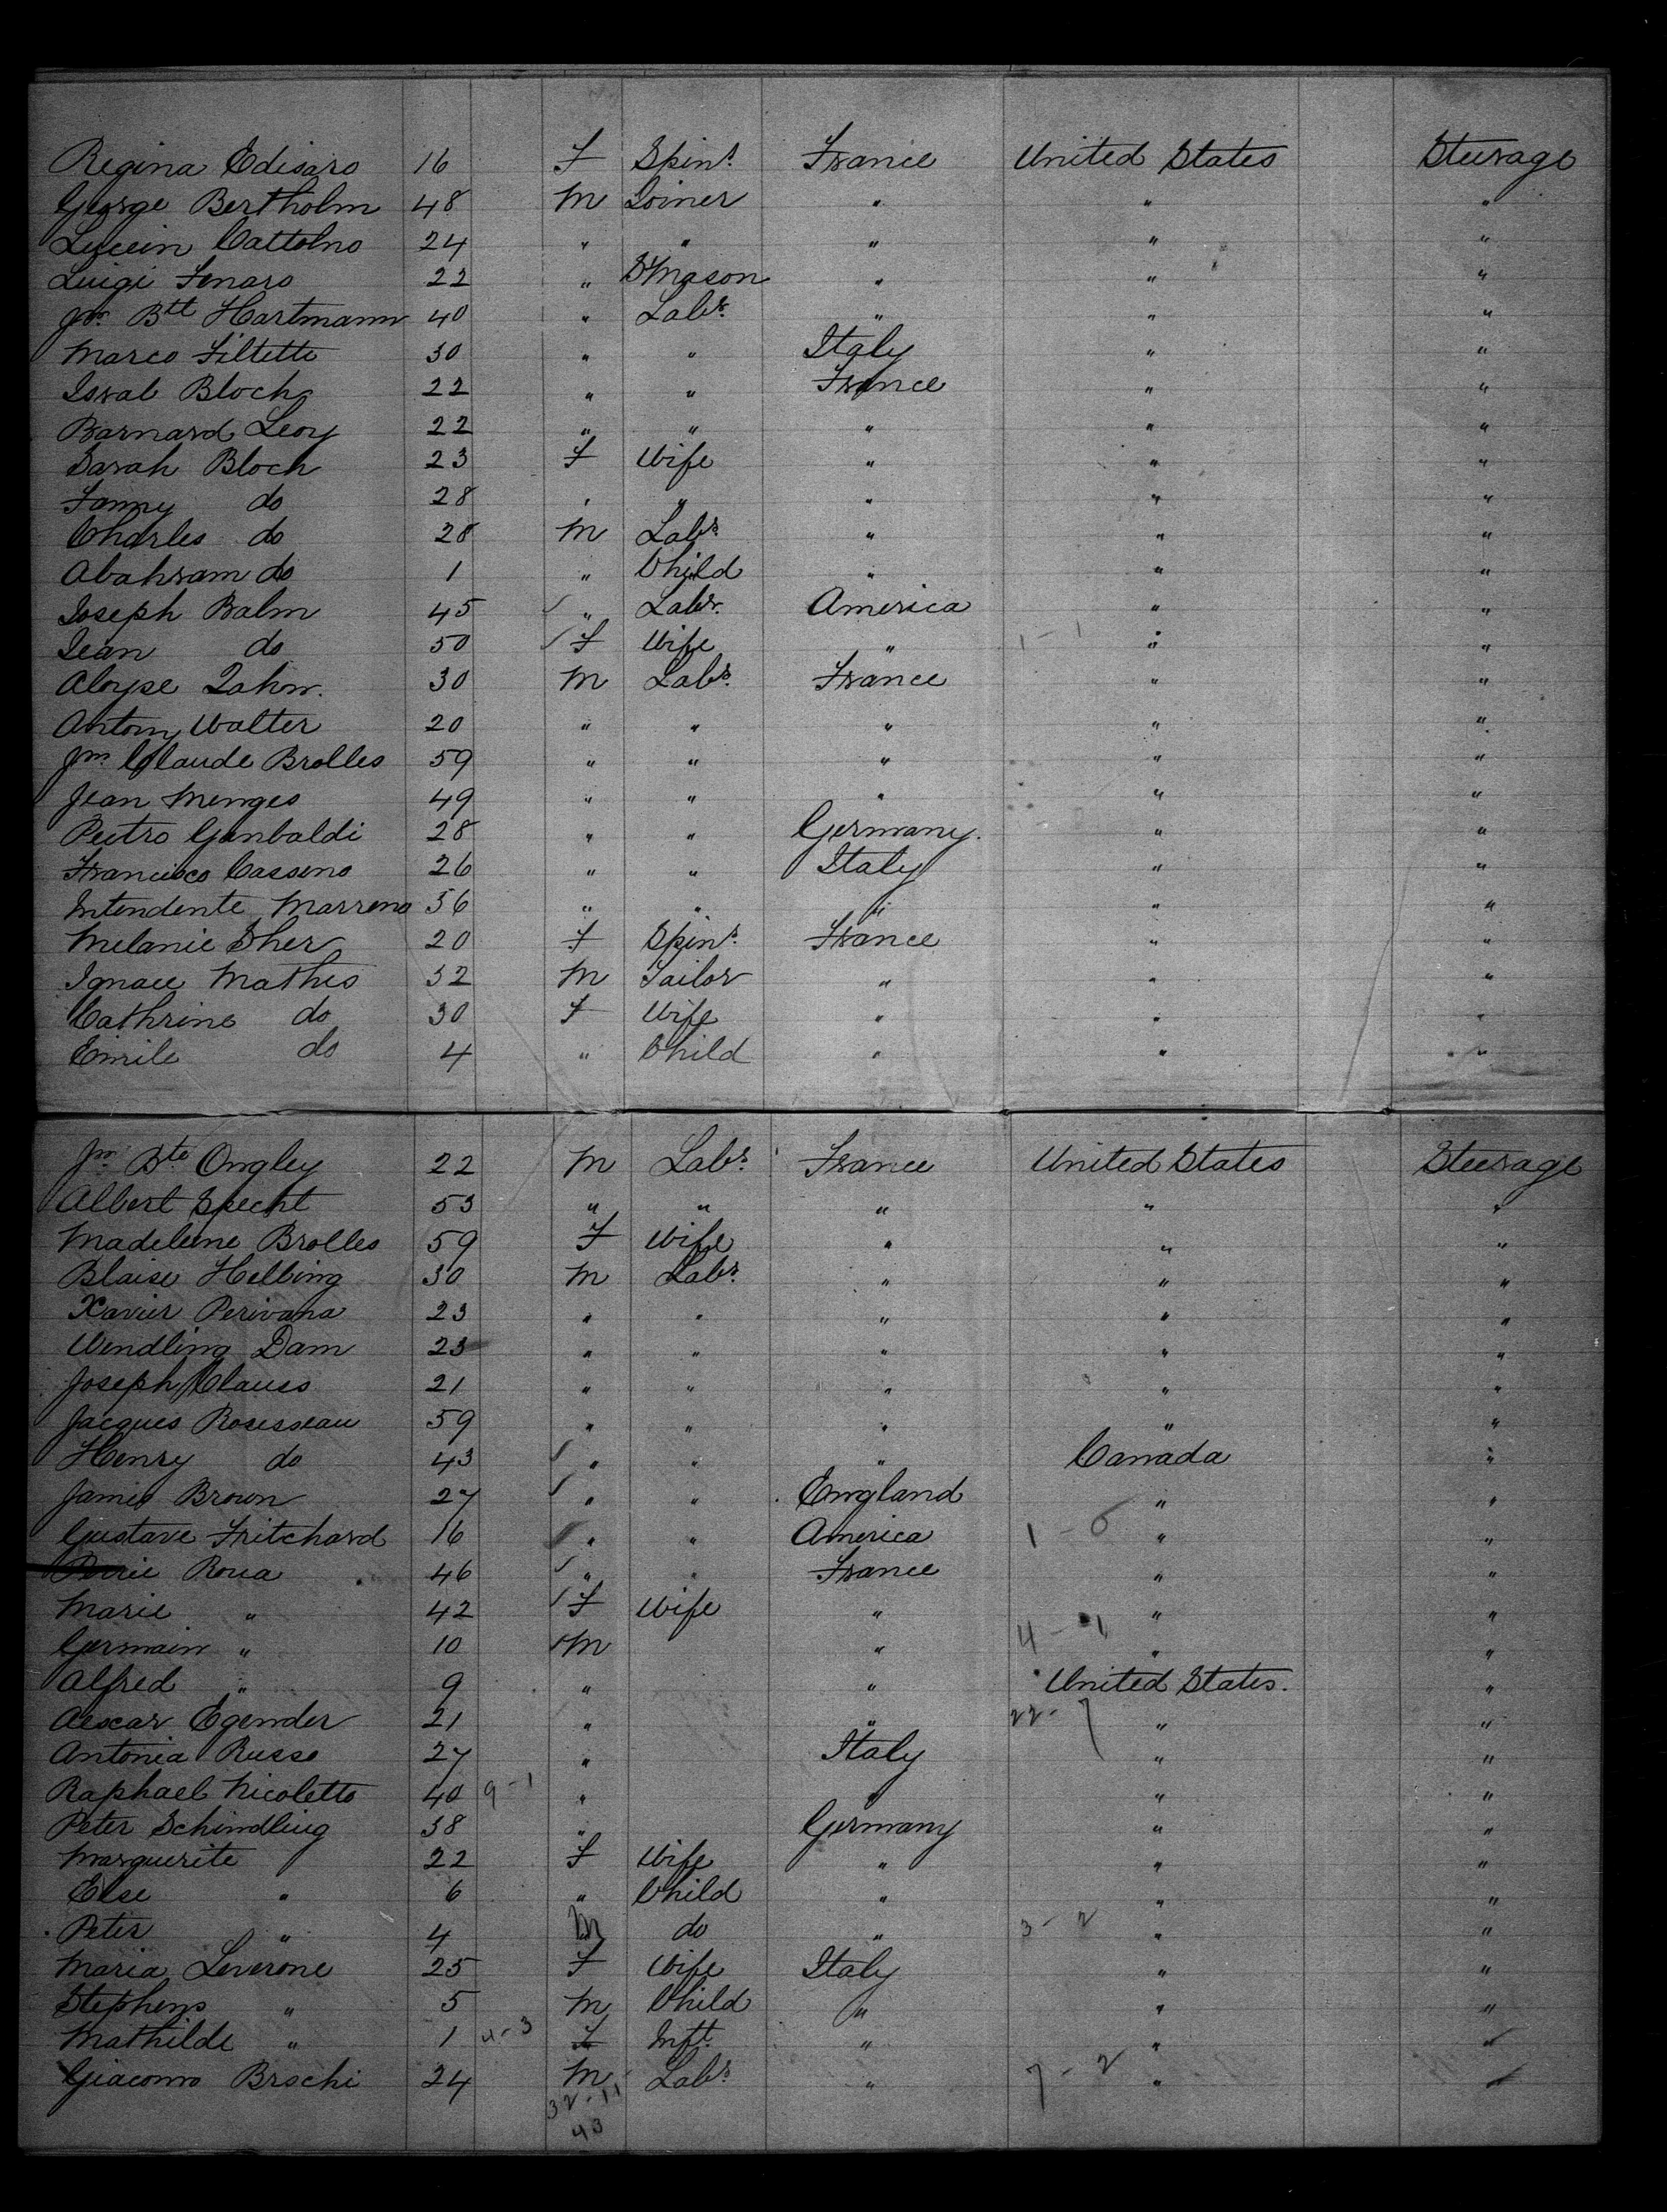 Regina Edisaro 16 F Spinr. France United States Steerage
George Bertholm 48 M Joiner " " "
Lucein Cattolno 24 " " " " "
Luigi Fenaro 22 " St Mason " " "
Jn. Btt Hartmann 40 " Labr. " " "
Marco Filtette 30 " " Italy " "
Isral Bloch 22 " " France " "
Barnard Levy 22 " " " " "
Sarah Bloch 23 F Wife " " "
Fanny do 28 " " " " "
Charles do 28 M Labr. " " "
Abahram do 1 " Child " " "
Joseph Balm 45 " Labr. America " "
Jean do 50 F Wife " 1-1 " "
Aloyse Zahn. 30 M Labr. France " "
Antony Walter 20 " " " " "
Jn. Claude Brolles 59 " " " " "
Jean Menges 49 " " " " "
Peitro Garibaldi 28 " " Germany. " "
Francisco Cassino 26 " " Italy " "
Intendente Marreno 36 " " " " "
Melanie Sher 20 F Spinr. France " "
Ignace Mathis 32 M Tailor " " "
Cathrine do 30 F Wife " " "
Emile do 4 " Child " " "
Jn. Bte Ongley 22 M Labr. France United States Steerage
Albert Specht 53 " " " " "
Madeleine Brolles 59 F Wife " " "
Blaise Helbing 30 M Labr. " " "
Xavier Perivana 23 " " " " "
Wendling Dam 23 " " " " "
Joseph Clauss 21 " " " " "
Jacques Rosesseau 59 " " " " "
Henry do 43 " " " Canada "
James Brown 27 " " England " "
Gustave Fritchard 16 " " America 1-0 " "
Perrie Roua 46 " " France " "
Marie " 42 F Wife " " "
Germain " 10 M " 4-1 " "
Alfred " 9 " " United States. "
Aescar Egender 21 " " 22-7 " "
Antonia Russo 27 " Italy " "
Raphael Nicoletto 40 9-1 " " " "
Peter Schindling 38 " Germany " "
Marguerite " 22 F Wife " " "
Else " 6 " Child " " "
Peter " 4 M do " 3-2 " "
Maria Leverone 25 F Wife Italy " "
Stephens " 5 M Child " " "
Mathilde " 1 4-3 F Inft. " " "
Giacomo Brochi 24 M Labr. " 7-2 " "
32-11
43